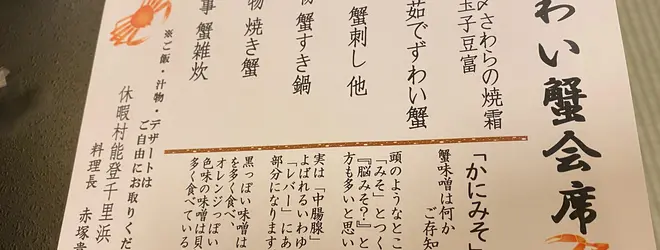 わい蟹会席
〆さわらの焼霜
玉子豆富
茹でずわい蟹
蟹刺し 他
物 蟹すき鍋
物 焼き蟹
事 蟹雑炊
※ご飯・汁物・デザートは
ご自由にお取りくだ
休暇村能登千里浜
料理長 赤塚貴
「かにみそ」
蟹味噌は何か
ご存知
頭のようなとこ
「みそ」とつく
『脳みそ？』と
方も多いと思い
実は「中腸腺」
よばれるいわゆ
「レバー」にあ
部分になります
黒っぽい味噌は
を多く食べ、
オレンジっぽい
色味の味噌は貝
多く食べている